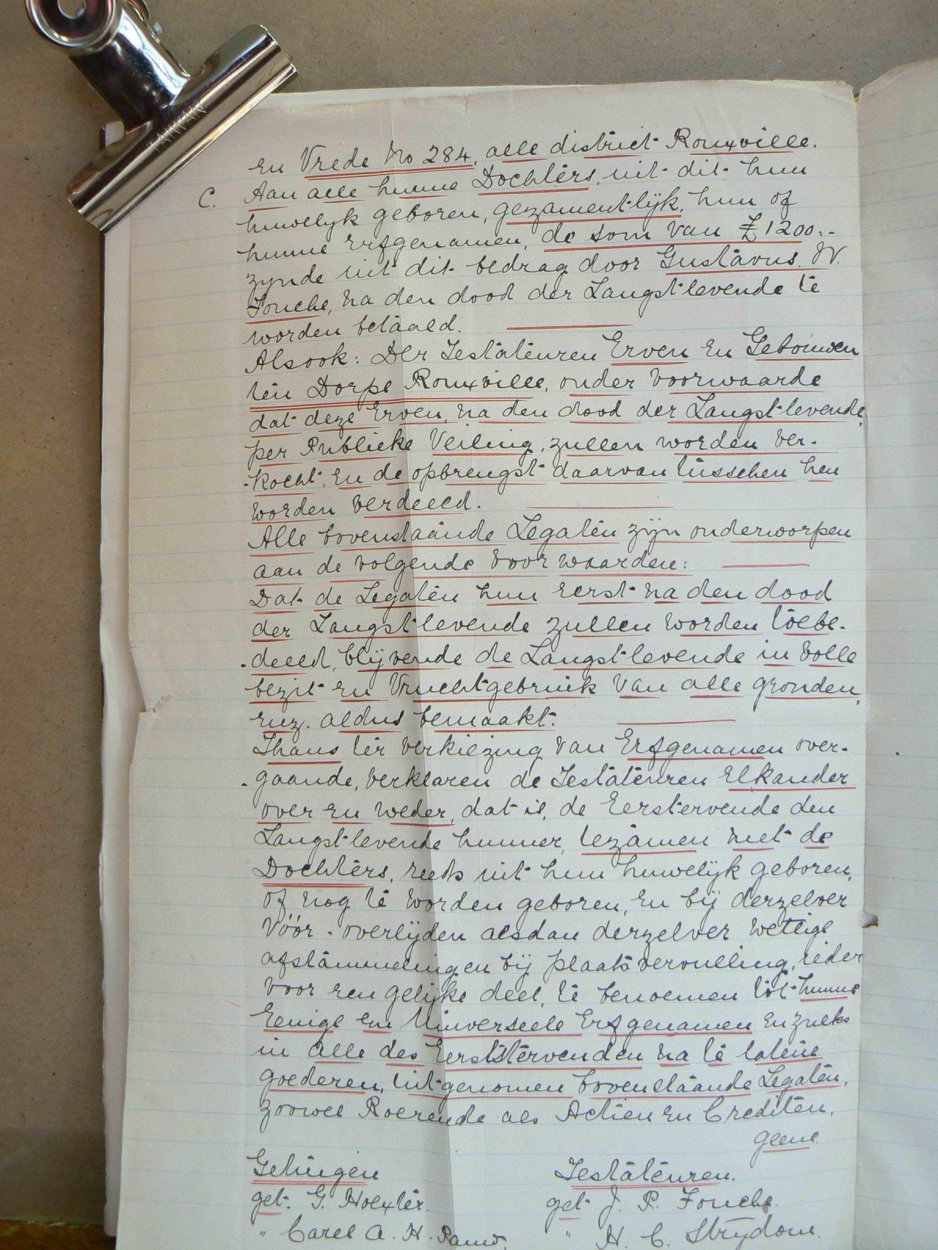 TAIWAN
en Vrede No 284, alle district Rouxville.
C. Aan alle hunne Dochters, uit dit hun
huwelyk geboren, gezamentlyk, hun of
hunne erfgenamen, de som van £1200:-
zynde uit dit bedrag door Gustavus W
Fouche, na den dood der Langstlevende te
worden betaald.
Alsook: Der Testateuren Erven en Gebouwen
ten Dorpe Rouxville, onder voorwaarde
dat deze Erven, na den dood der Langstlevende,
per Publieke Veiling, zullen worden ver-
-kocht, en de opbrengst daarvan tusschen hen
worden verdeeld.
Alle bovenstaande Legaten zijn onderworpen
aan de volgende voorwaarden:
Dat de Legaten hun eerst na den dood
der Langstlevende zullen worden toebe-
-deeld, blijvende de Langstlevende in volle
bezit en Vruchtgebruik van alle gronden,
enz. aldus bemaakt.
Thans ter verkiezing van Erfgenamen over-
-gaande, verklaren de Testateuren Elkander
over en weder, dat is, de Eerstervende den
Langstlevende hunner, tezamen met de
Dochters, reeds uit hun huwelyk geboren,
of nog te worden geboren, en bij derzelver
vóór-overlijden alsdan derzelver wettige
afstammelingen bij plaatsvervulling, ieder
voor een gelijke deel, te benoemen tot hunne
Eenige en Universeele Erfgenamen en zulks
in alle des Eerststervenden na te latene
goederen, uitgenomen bovenstaande Legaten,
zoowel Roerende als Actien en Crediten,
geene
Getuigen Testateuren.
get. G. Hoexter. get J. P. Fouche.
" Carel A. H. Pauw. " H. C. Strydom.